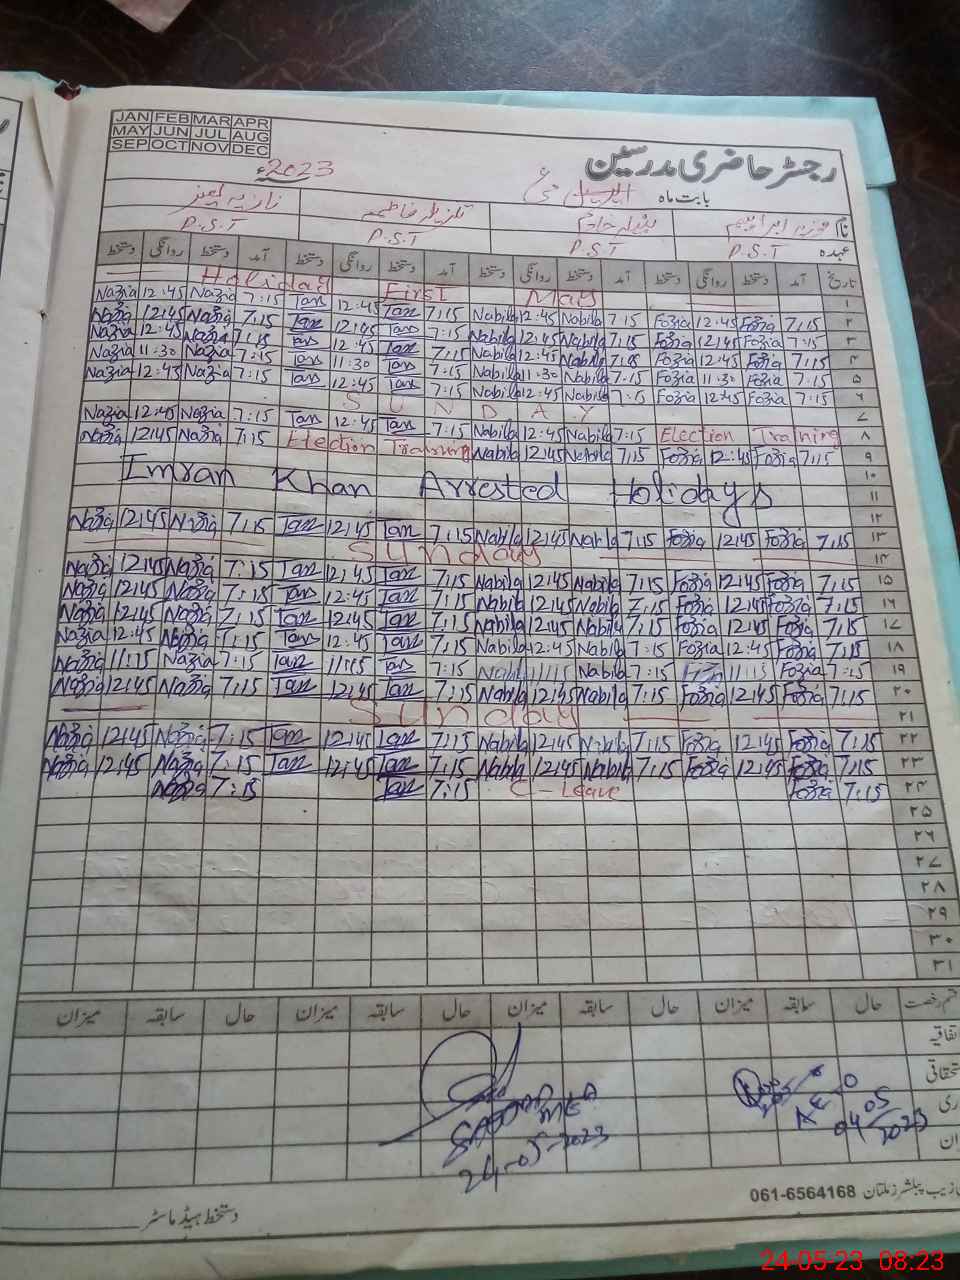 JAN FEB MAR APR
MAY JUN JUL AUG
SEP OCT NOV DEC
رجسٹر حاضری مدرسین
بابت ماہ مئی 2023ء
نام فوزیہ ابراہیم نبیلہ خادم فاطمہ نازیہ
عہدہ P.S.T P.S.T P.S.T P.S.T
تاریخ آمد دستخط روانگی دستخط آمد دستخط روانگی دستخط آمد دستخط روانگی دستخط آمد دستخط روانگی دستخط
Holiday First May ۱
Nazia 12:45 Nazia 7:15 Tan 12:45 Tan 7:15 Nabila 12:45 Nabila 7:15 Fozia 12:45 Fozia 7:15 ۲
Nazia 12:45 Nazia 7:15 Tan 12:45 Tan 7:15 Nabila 12:45 Nabila 7:15 Fozia 12:45 Fozia 7:15 ۳
Nazia 12:45 Nazia 7:15 Tan 12:45 Tan 7:15 Nabila 12:45 Nabila 7:15 Fozia 12:45 Fozia 7:15 ۴
Nazia 11:30 Nazia 7:15 Tan 11:30 Tan 7:15 Nabila 11:30 Nabila 7:15 Fozia 11:30 Fozia 7:15 ۵
Nazia 12:45 Nazia 7:15 Tan 12:45 Tan 7:15 Nabila 12:45 Nabila 7:15 Fozia 12:45 Fozia 7:15 ۶
SUNDAY ۷
Nazia 12:45 Nazia 7:15 Tan 12:45 Tan 7:15 Nabila 12:45 Nabila 7:15 Election Training ۸
Nazia 12:45 Nazia 7:15 Election Training Nabila 12:45 Nabila 7:15 Fozia 12:45 Fozia 7:15 ۹
۱۰
Imran Khan Arrested Holidays ۱۱
۱۲
Nazia 12:45 Nazia 7:15 Tan 12:45 Tan 7:15 Nabila 12:45 Nabila 7:15 Fozia 12:45 Fozia 7:15 ۱۳
Sunday ۱۴
Nazia 12:45 Nazia 7:15 Tan 12:45 Tan 7:15 Nabila 12:45 Nabila 7:15 Fozia 12:45 Fozia 7:15 ۱۵
Nazia 12:45 Nazia 7:15 Tan 12:45 Tan 7:15 Nabila 12:45 Nabila 7:15 Fozia 12:45 Fozia 7:15 ۱۶
Nazia 12:45 Nazia 7:15 Tan 12:45 Tan 7:15 Nabila 12:45 Nabila 7:15 Fozia 12:45 Fozia 7:15 ۱۷
Nazia 12:45 Nazia 7:15 Tan 12:45 Tan 7:15 Nabila 12:45 Nabila 7:15 Fozia 12:45 Fozia 7:15 ۱۸
Nazia 11:15 Nazia 7:15 Tan 11:15 Tan 7:15 Nabila 11:15 Nabila 7:15 11:15 Fozia 7:15 ۱۹
Nazia 12:45 Nazia 7:15 Tan 12:45 Tan 7:15 Nabila 12:45 Nabila 7:15 Fozia 12:45 Fozia 7:15 ۲۰
Sunday ۲۱
Nazia 12:45 Nazia 7:15 Tan 12:45 Tan 7:15 Nabila 12:45 Nabila 7:15 Fozia 12:45 Fozia 7:15 ۲۲
Nazia 12:45 Nazia 7:15 Tan 12:45 Tan 7:15 Nabila 12:45 Nabila 7:15 Fozia 12:45 Fozia 7:15 ۲۳
Nazia 7:15 Tan 7:15 C-Leave Fozia 7:15 ۲۴
۲۵
۲۶
۲۷
۲۸
۲۹
۳۰
۳۱
رخصت حال سابقہ میزان حال سابقہ میزان حال سابقہ میزان حال سابقہ میزان
MEA
24-05-2023
AEO
04/05/2023
پبلشرز ملتان 061-6564168
دستخط ہیڈ ماسٹر
24-05-23 08:23